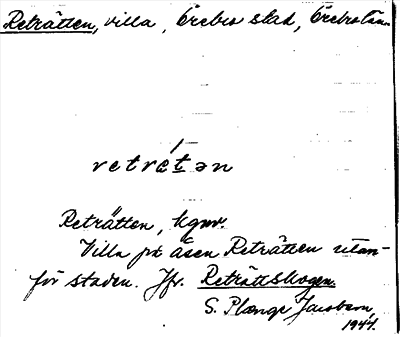 Reträtten, villa, Örebro stad, Örebro län.
retrétən
Reträtten, hgnr.
Villa på åsen Reträtten utan-
för staden. Jfr. Reträttskogen.
S. Plænge Jacobson,
1944.